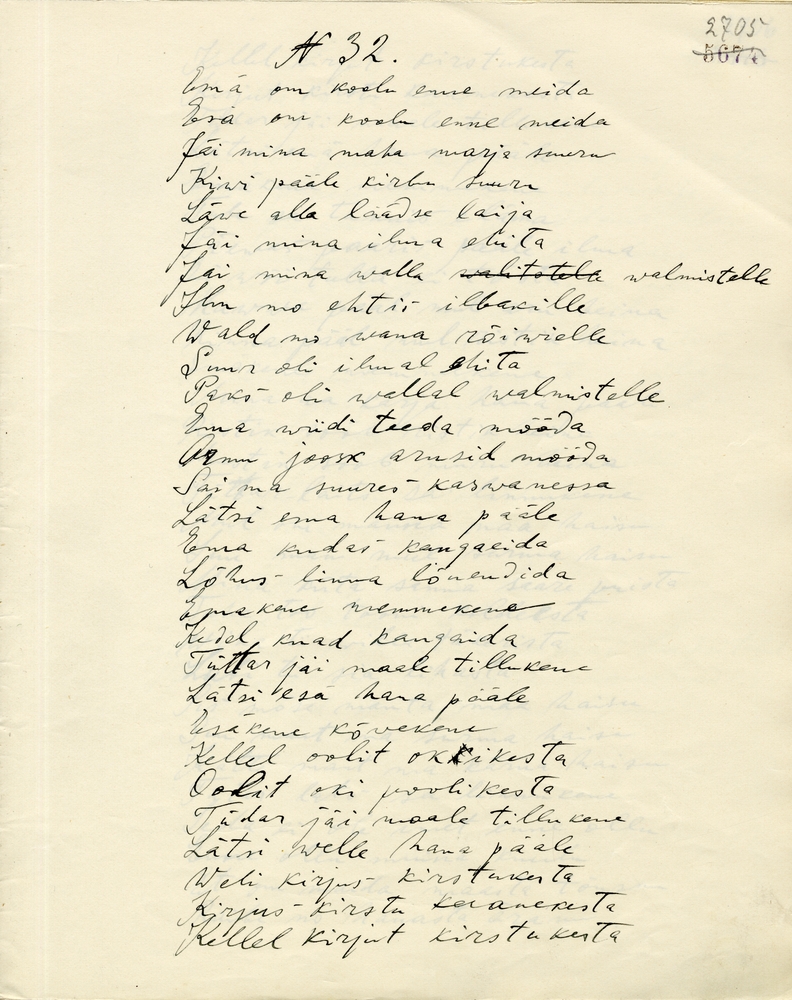 2705
5674
N 32.
Emä om koolu enne meida
Esä om koolu enne meida
Jäi mina maha marja suuru
Kiwi pääle kirbu suuru
Läwe alla läädse laija
Jäi mina ilma ehita
Jäi mina walla walitstela walmistelle
Ilm mo ehtis ilbakille
Wald mo wana rõiwielle
Suur oli ilmal ehita
Paks oli wallal walmistelle
Ema wiidi teeda mööda
Armu joosk arusid mööda
Sai ma suures kaswanessa
Lätsi ema haua pääle
Ema kudas kangaeida
Lõhus linna lõuendida
Emakene memmekene
Kedel kuad kangaida
Tüttar jäi maale tillukene
Lätsi esä haua pääle
Esäkene kõvekene
Kellel oolit okikesta
Oolit oki poolikesta
Tüdar jäi maale tillukene
Lätsi welle haua pääle
Weli kirjus kirstukesta
Kirjus kirstu kaanekesta
Kellel kirjut kirstukesta